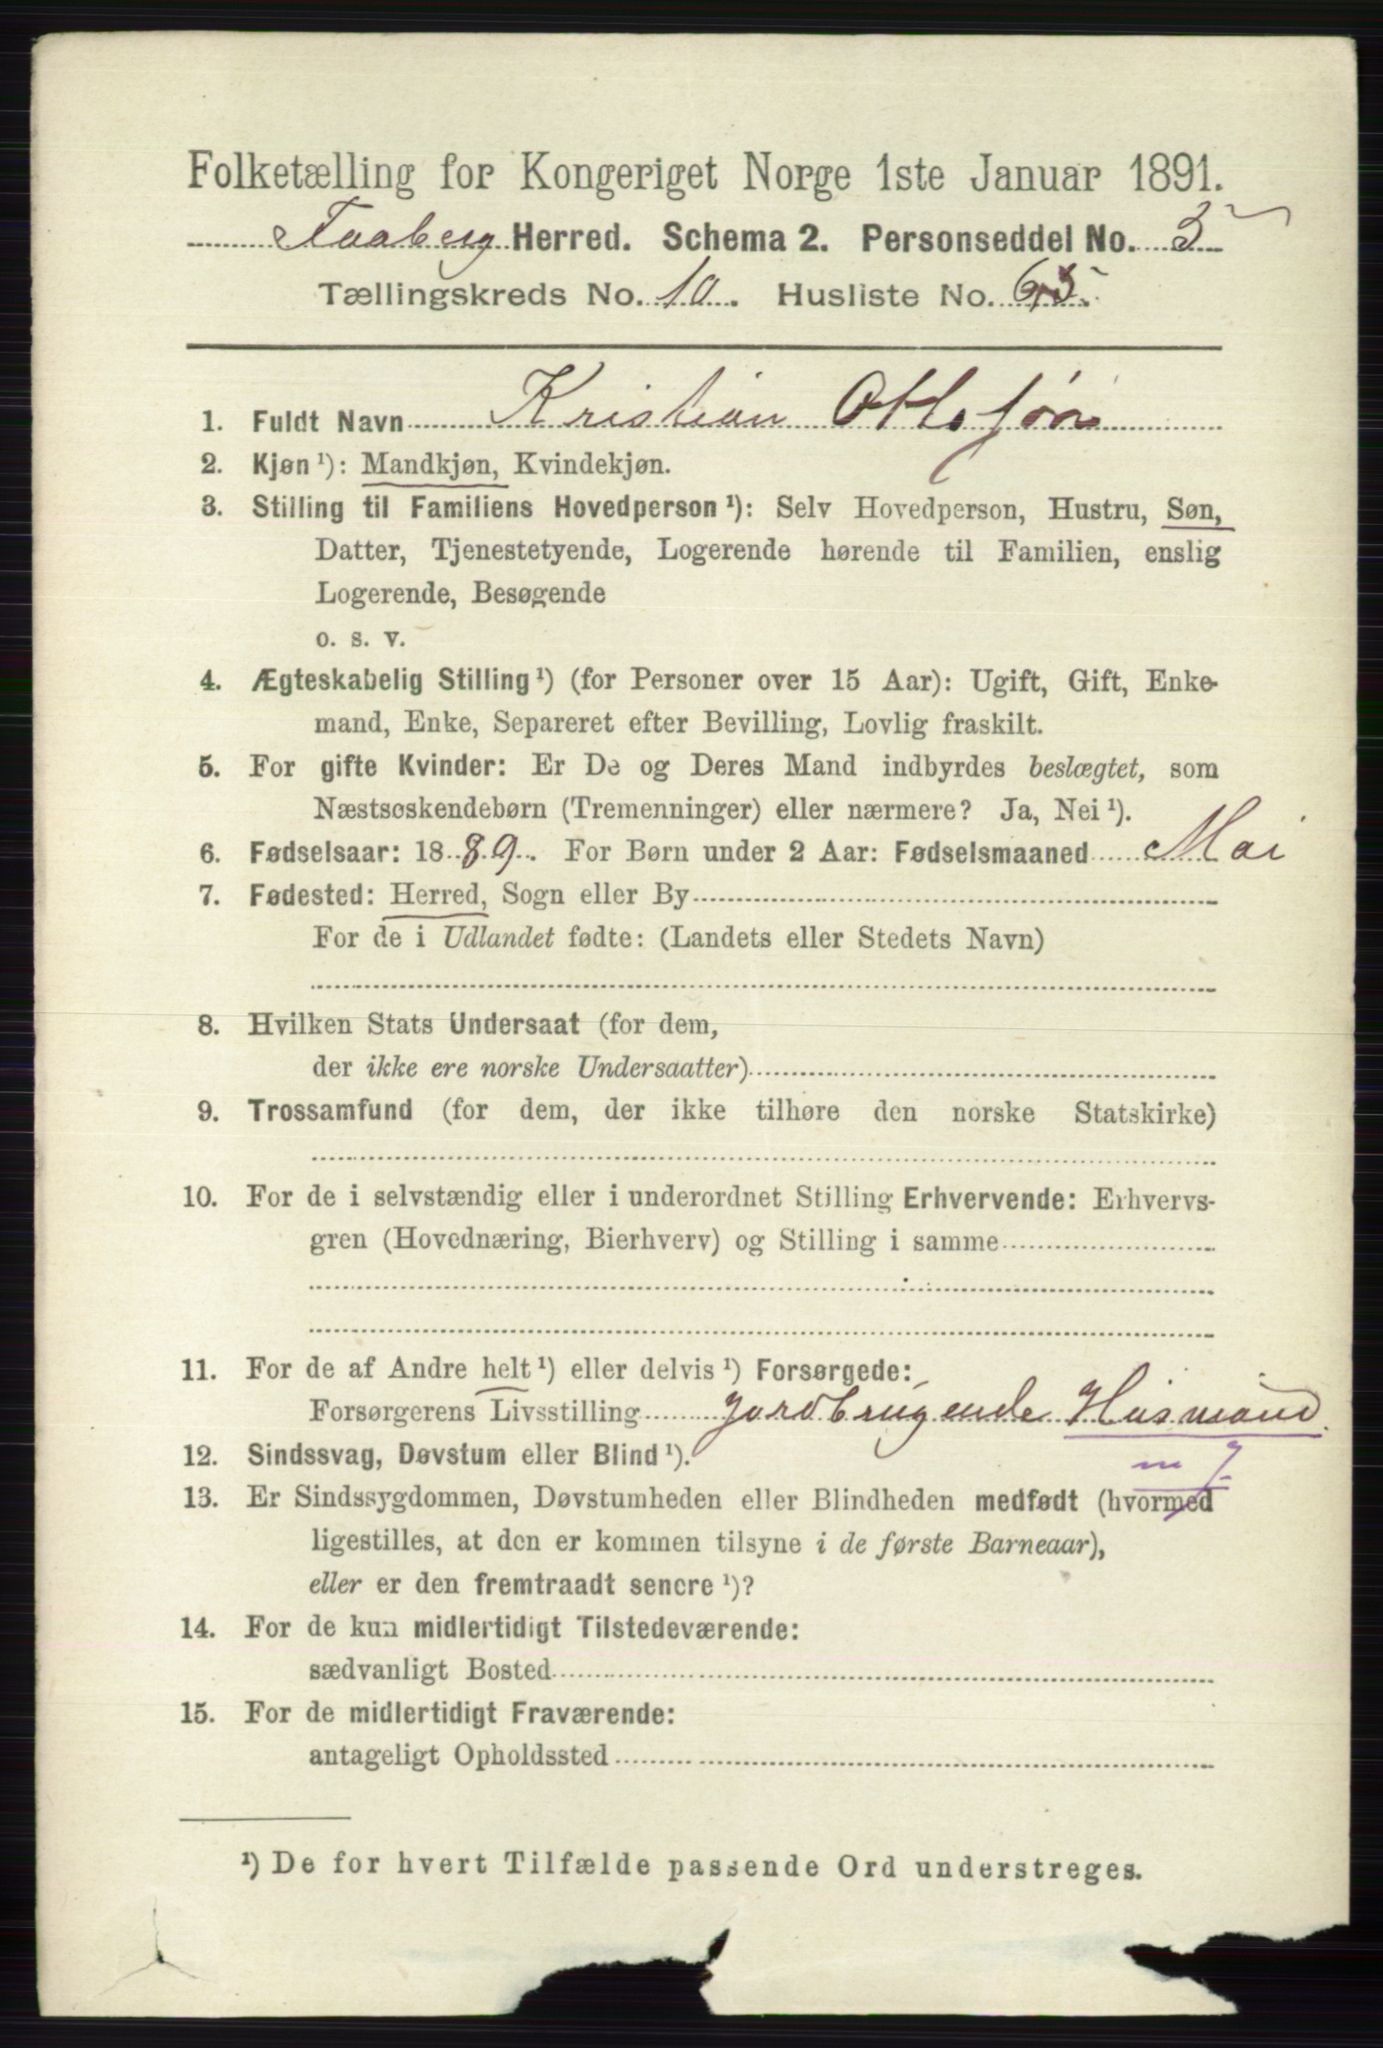 Folketælling for Kongeriget Norge 1ste Januar 1891.
Faaberg Herred. Schema 2. Personseddel No. 5
Tællingskreds No. 10. Husliste No. 65.
1. Fuldt Navn Kristian Ottosøn
2. Kjøn ¹): Mandkjøn, Kvindekjøn.
3. Stilling til Familiens Hovedperson ¹): Selv Hovedperson, Hustru, Søn,
Datter, Tjenestetyende, Logerende hørende til Familien, enslig
Logerende, Besøgende
o. s. v.
4. Ægteskabelig Stilling ¹) (for Personer over 15 Aar): Ugift, Gift, Enke-
mand, Enke, Separeret efter Bevilling, Lovlig fraskilt.
5. For gifte Kvinder: Er De og Deres Mand indbyrdes beslægtet, som
Næstsøskendebørn (Tremenninger) eller nærmere? Ja, Nei ¹).
6. Fødselsaar: 1889. For Børn under 2 Aar: Fødselsmaaned Mai
7. Fødested: Herred, Sogn eller By
For de i Udlandet fødte: (Landets eller Stedets Navn)
8. Hvilken Stats Undersaat (for dem,
der ikke ere norske Undersaatter)
9. Trossamfund (for dem, der ikke tilhøre den norske Statskirke)
10. For de i selvstændig eller i underordnet Stilling Erhvervende: Erhvervs-
gren (Hovednæring, Bierhverv) og Stilling i samme
11. For de af Andre helt ¹) eller delvis ¹) Forsørgede:
Forsørgerens Livsstilling Jordbrugende Husmand.
12. Sindssvag, Døvstum eller Blind ¹).
m J
13. Er Sindssygdommen, Døvstumheden eller Blindheden medfødt (hvormed
ligestilles, at den er kommen tilsyne i de første Barneaar),
eller er den fremtraadt senere ¹)?
14. For de kun midlertidigt Tilstedeværende:
sædvanligt Bosted
15. For de midlertidigt Fraværende:
antageligt Opholdssted
¹) De for hvert Tilfælde passende Ord understreges.